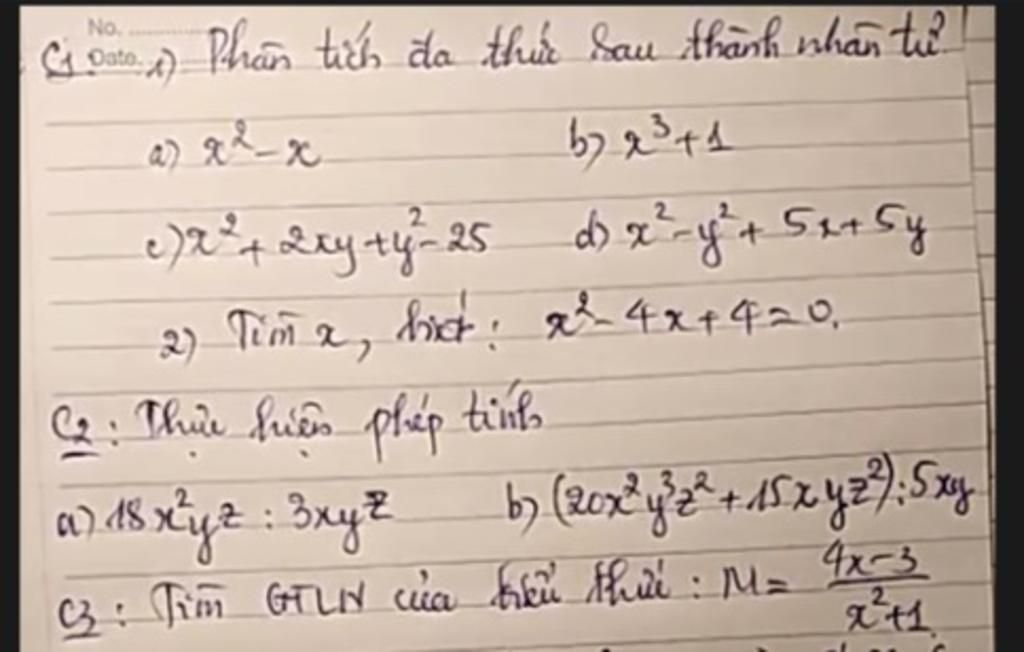 No. ............
Date.
C1. 1) Phân tích đa thức sau thành nhân tử
a) x² - x b) x³ + 1
c) x² + 2xy + y² - 25 d) x² - y² + 5x + 5y
2) Tìm x, biết: x² - 4x + 4 = 0.
C2: Thực hiện phép tính
a) 18x²yz : 3xyz b) (20x²y³z² + 15xyz²) : 5xy
C3: Tìm GTLN của biểu thức: M = (4x-3)/(x²+1).